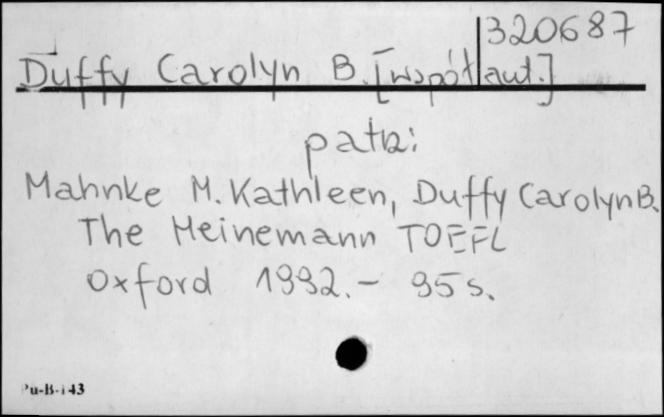 320687
Duffy Carolyn B. [współaut.]
patrz:
Mahnke M. Kathleen, Duffy Carolyn B.
The Heinemann TOEFL
Oxford 1992. - 95 s.
Pu-B-143